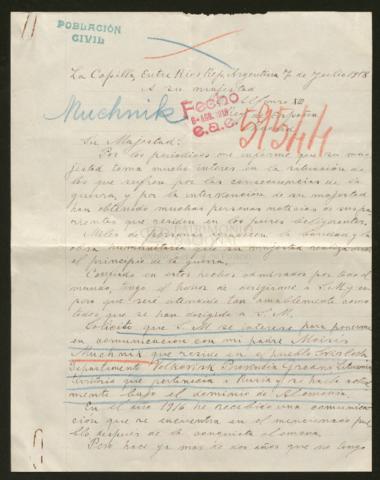 POBLACIÓN
CIVIL
La Capilla, Entre Rios Rep. Argentina 7 de Julio 1918
A su majestad
Alfonso XIII
Rey de España
Muchnik
Fecho
e.a.e.
59544
Su Majestad:
Por los periodicos me informé que su ma-
jestad toma mucho interes en la situación de
los que sufren por las consecuencias de la
guerra, y por la intervención de su majestad
han obtenido muchas personas noticias de sus pa-
rientes que residen en los paises beligerantes.
Miles de personas agradecen la bondad y la
obra humanitaria que su majestad realiza desde
el principio de la guerra.
en estos hechos admirados por todo el
mundo, tengo el honor de dirigirme á S. M. y es-
pero que seré atendido tan amablemente como
todos que se han dirigido á S. M.
Solicito que S. M. se interese para ponerme
en comunicación con mi padre Moises
Muchnik que reside en el pueblo
Departamento Volkovisk Provincia Grodno
territorio que pertenecia a Rusia y se halla actual-
mente bajo el dominio de Alemania.
En el año 1916 he recibido una comunica-
ción que se encuentra en el mencionado pue-
blo despues de la conquista alemana.
Pero hace ya mas de dos años que no tengo